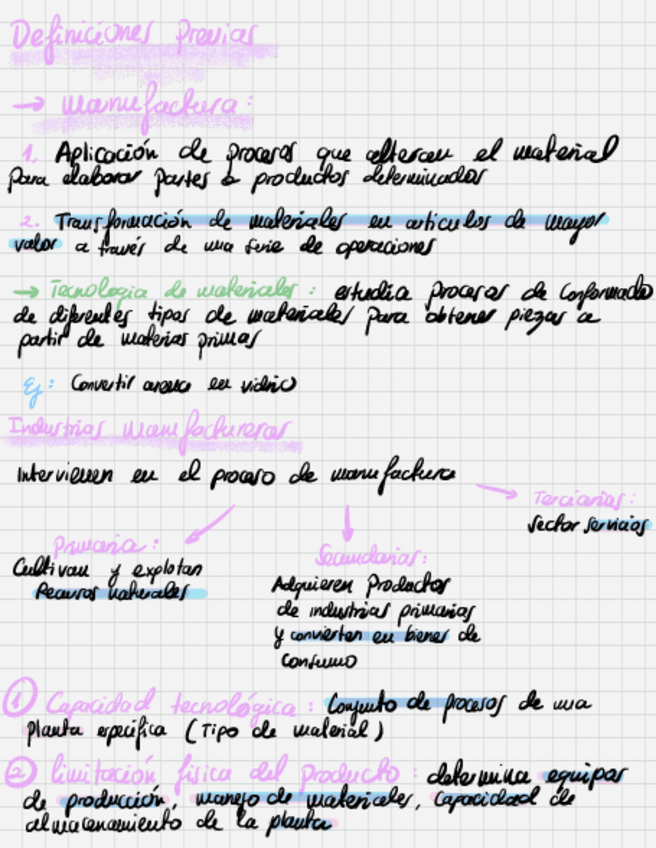 Definiciones Previas
→ Manufactura:
1. Aplicación de procesos que alteran el material
para elaborar partes o productos determinados
2. Transformación de materiales en artículos de mayor
valor a través de una serie de operaciones
→ Tecnología de materiales: estudia procesos de conformado
de diferentes tipos de materiales para obtener piezas a
partir de materias primas
Ej: Convertir arena en vidrio
Industrias manufactureras
Intervienen en el proceso de manufactura
Terciarias:
sector servicios
Primaria:
Cultivan y explotan
Recursos naturales
Secundarias:
Adquieren Productos
de industrias primarias
y convierten en bienes de
consumo
1 Capacidad tecnológica: Conjunto de procesos de una
planta específica (Tipo de material)
2 limitación física del producto: determina equipos
de producción, manejo de materiales, capacidad de
almacenamiento de la planta